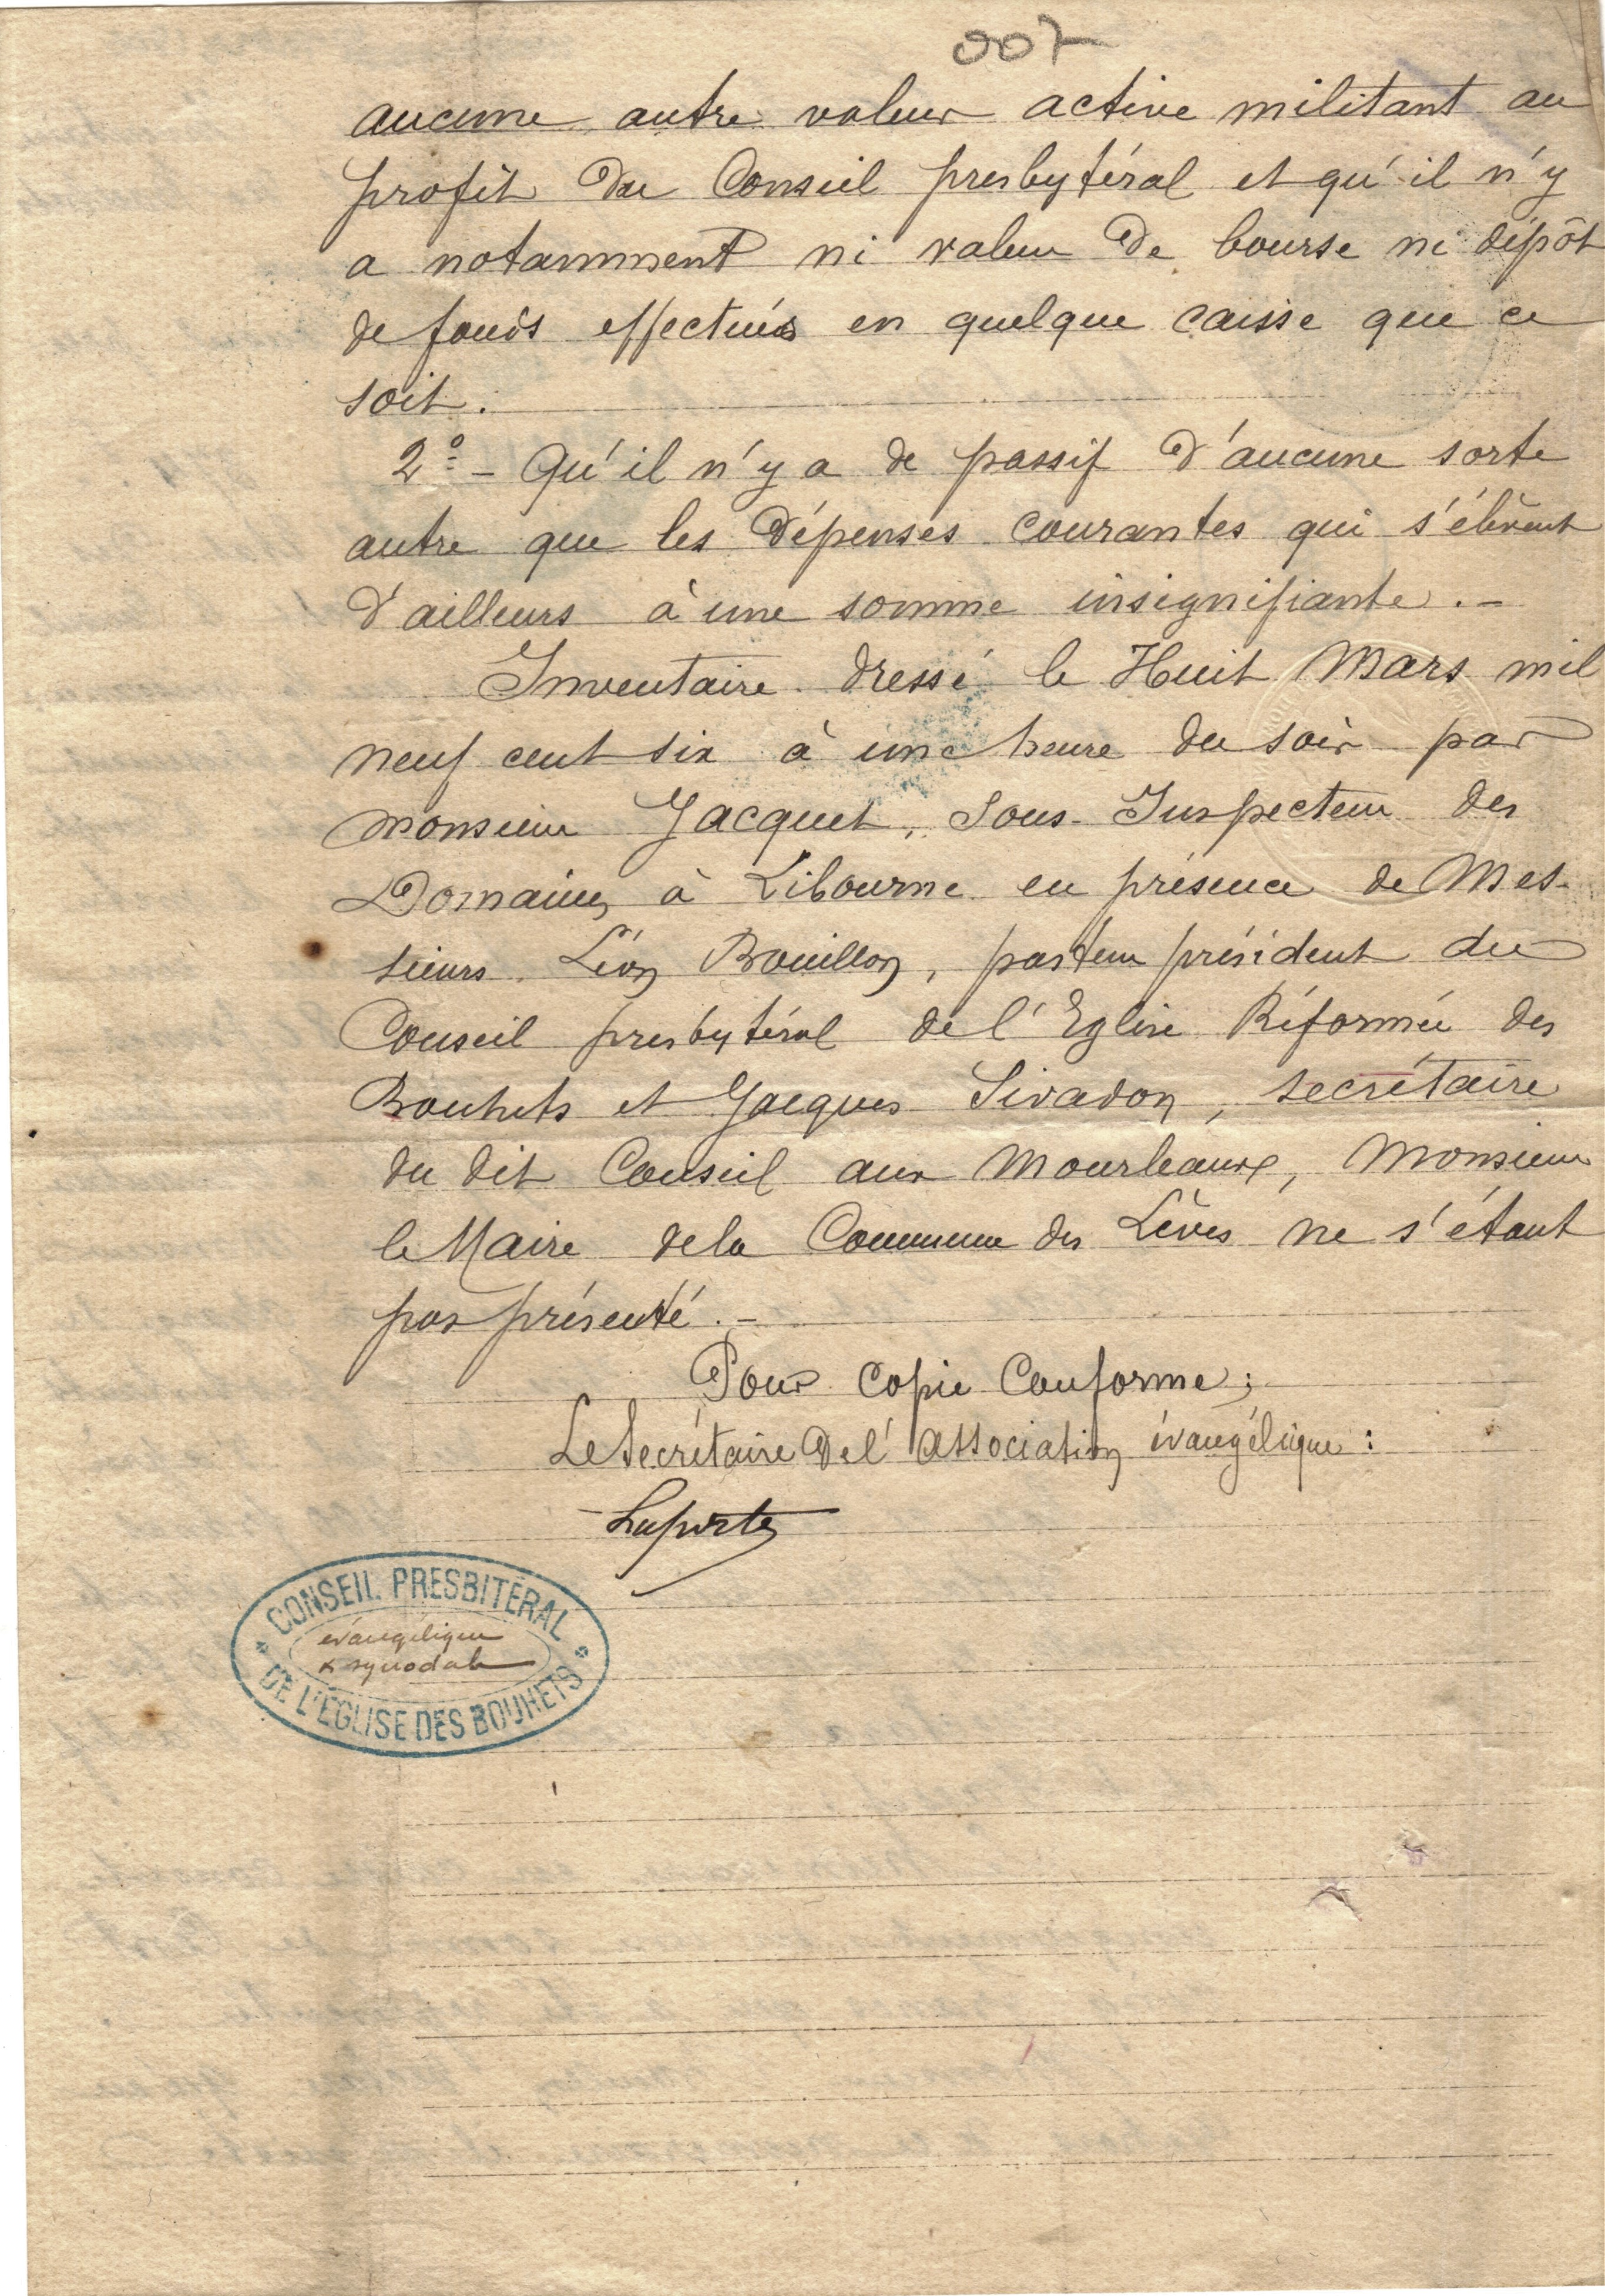 007
aucune autre valeur active militant au
profit du Conseil presbytéral et qu'il n'y
a notamment ni valeur de bourse ni dépôt
de fonds effectués en quelque caisse que ce
soit.
2° - Qu'il n'y a de passif d'aucune sorte
autre que les dépenses courantes qui s'élèvent
d'ailleurs à une somme insignifiante. -
Inventaire dressé le Huit Mars mil
neuf cent six à une heure du soir par
monsieur Jacquet, Sous-Inspecteur des
Domaines à Libourne en présence de Mes-
sieurs Léon Bouillon, pasteur président du
Conseil presbytéral de l'Eglise Réformée des
Bouhets et Jacques Sivadon, secrétaire
du dit Conseil aux Mourleaux, Monsieur
le Maire de la Commune des Lèves ne s'étant
pas présenté. -
Pour copie conforme;
Le Secrétaire de l'Association évangélique :
Laporte
CONSEIL PRESBITÉRAL
évangélique
& synodale
DE L'ÉGLISE DES BOUHETS